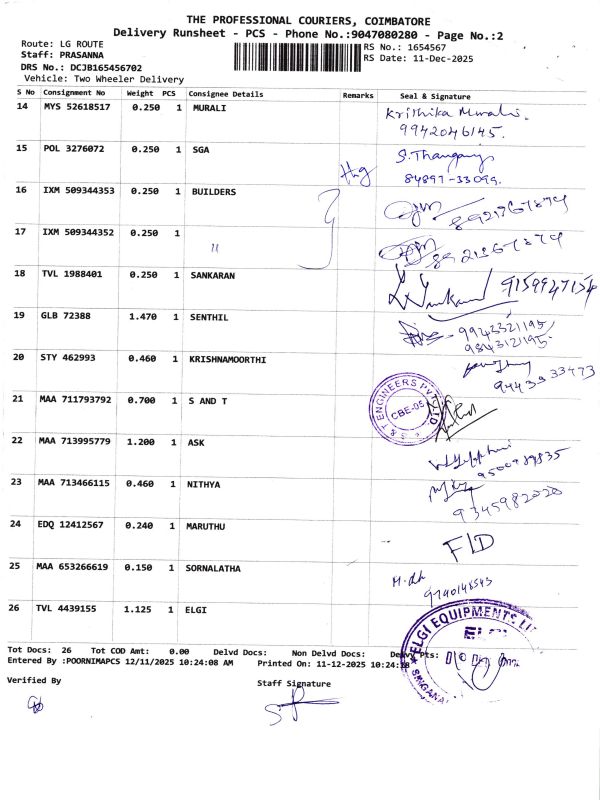 THE PROFESSIONAL COURIERS, COIMBATORE
Delivery Runsheet - PCS - Phone No.:9047080280 - Page No.:2
Route: LG ROUTE
RS No.: 1654567
Staff: PRASANNA
RS Date: 11-Dec-2025
DRS No.: DCJB165456702
Vehicle: Two Wheeler Delivery
S No Consignment No Weight PCS Consignee Details Remarks Seal & Signature
14 MYS 52618517 0.250 1 MURALI
Krithika Murali.
9942046145.
15 POL 3276072 0.250 1 SGA
S. Thangaraj
84897-33099.
16 IXM 509344353 0.250 1 BUILDERS
8921767874
17 IXM 509344352 0.250 1
"
18 TVL 1988401 0.250 1 SANKARAN
9159947154
19 GLB 72388 1.470 1 SENTHIL
9943321195
9843121195.
20 STY 462993 0.460 1 KRISHNAMOORTHI
94439 33473
21 MAA 711793792 0.700 1 S AND T
S & T ENGINEERS PVT LTD
CBE-05
22 MAA 713995779 1.200 1 ASK
23 MAA 713466115 0.460 1 NITHYA
9345982020
24 EDQ 12412567 0.240 1 MARUTHU
FID
25 MAA 653266619 0.150 1 SORNALATHA
26 TVL 4439155 1.125 1 ELGI
ELGI EQUIPMENTS
ELGI
Tot Docs: 26 Tot COD Amt: 0.00 Delvd Docs: Non Delvd Docs:
Entered By :POORNIMAPCS 12/11/2025 10:24:08 AM Printed On: 11-12-2025 10:24:18
Verified By
Staff Signature